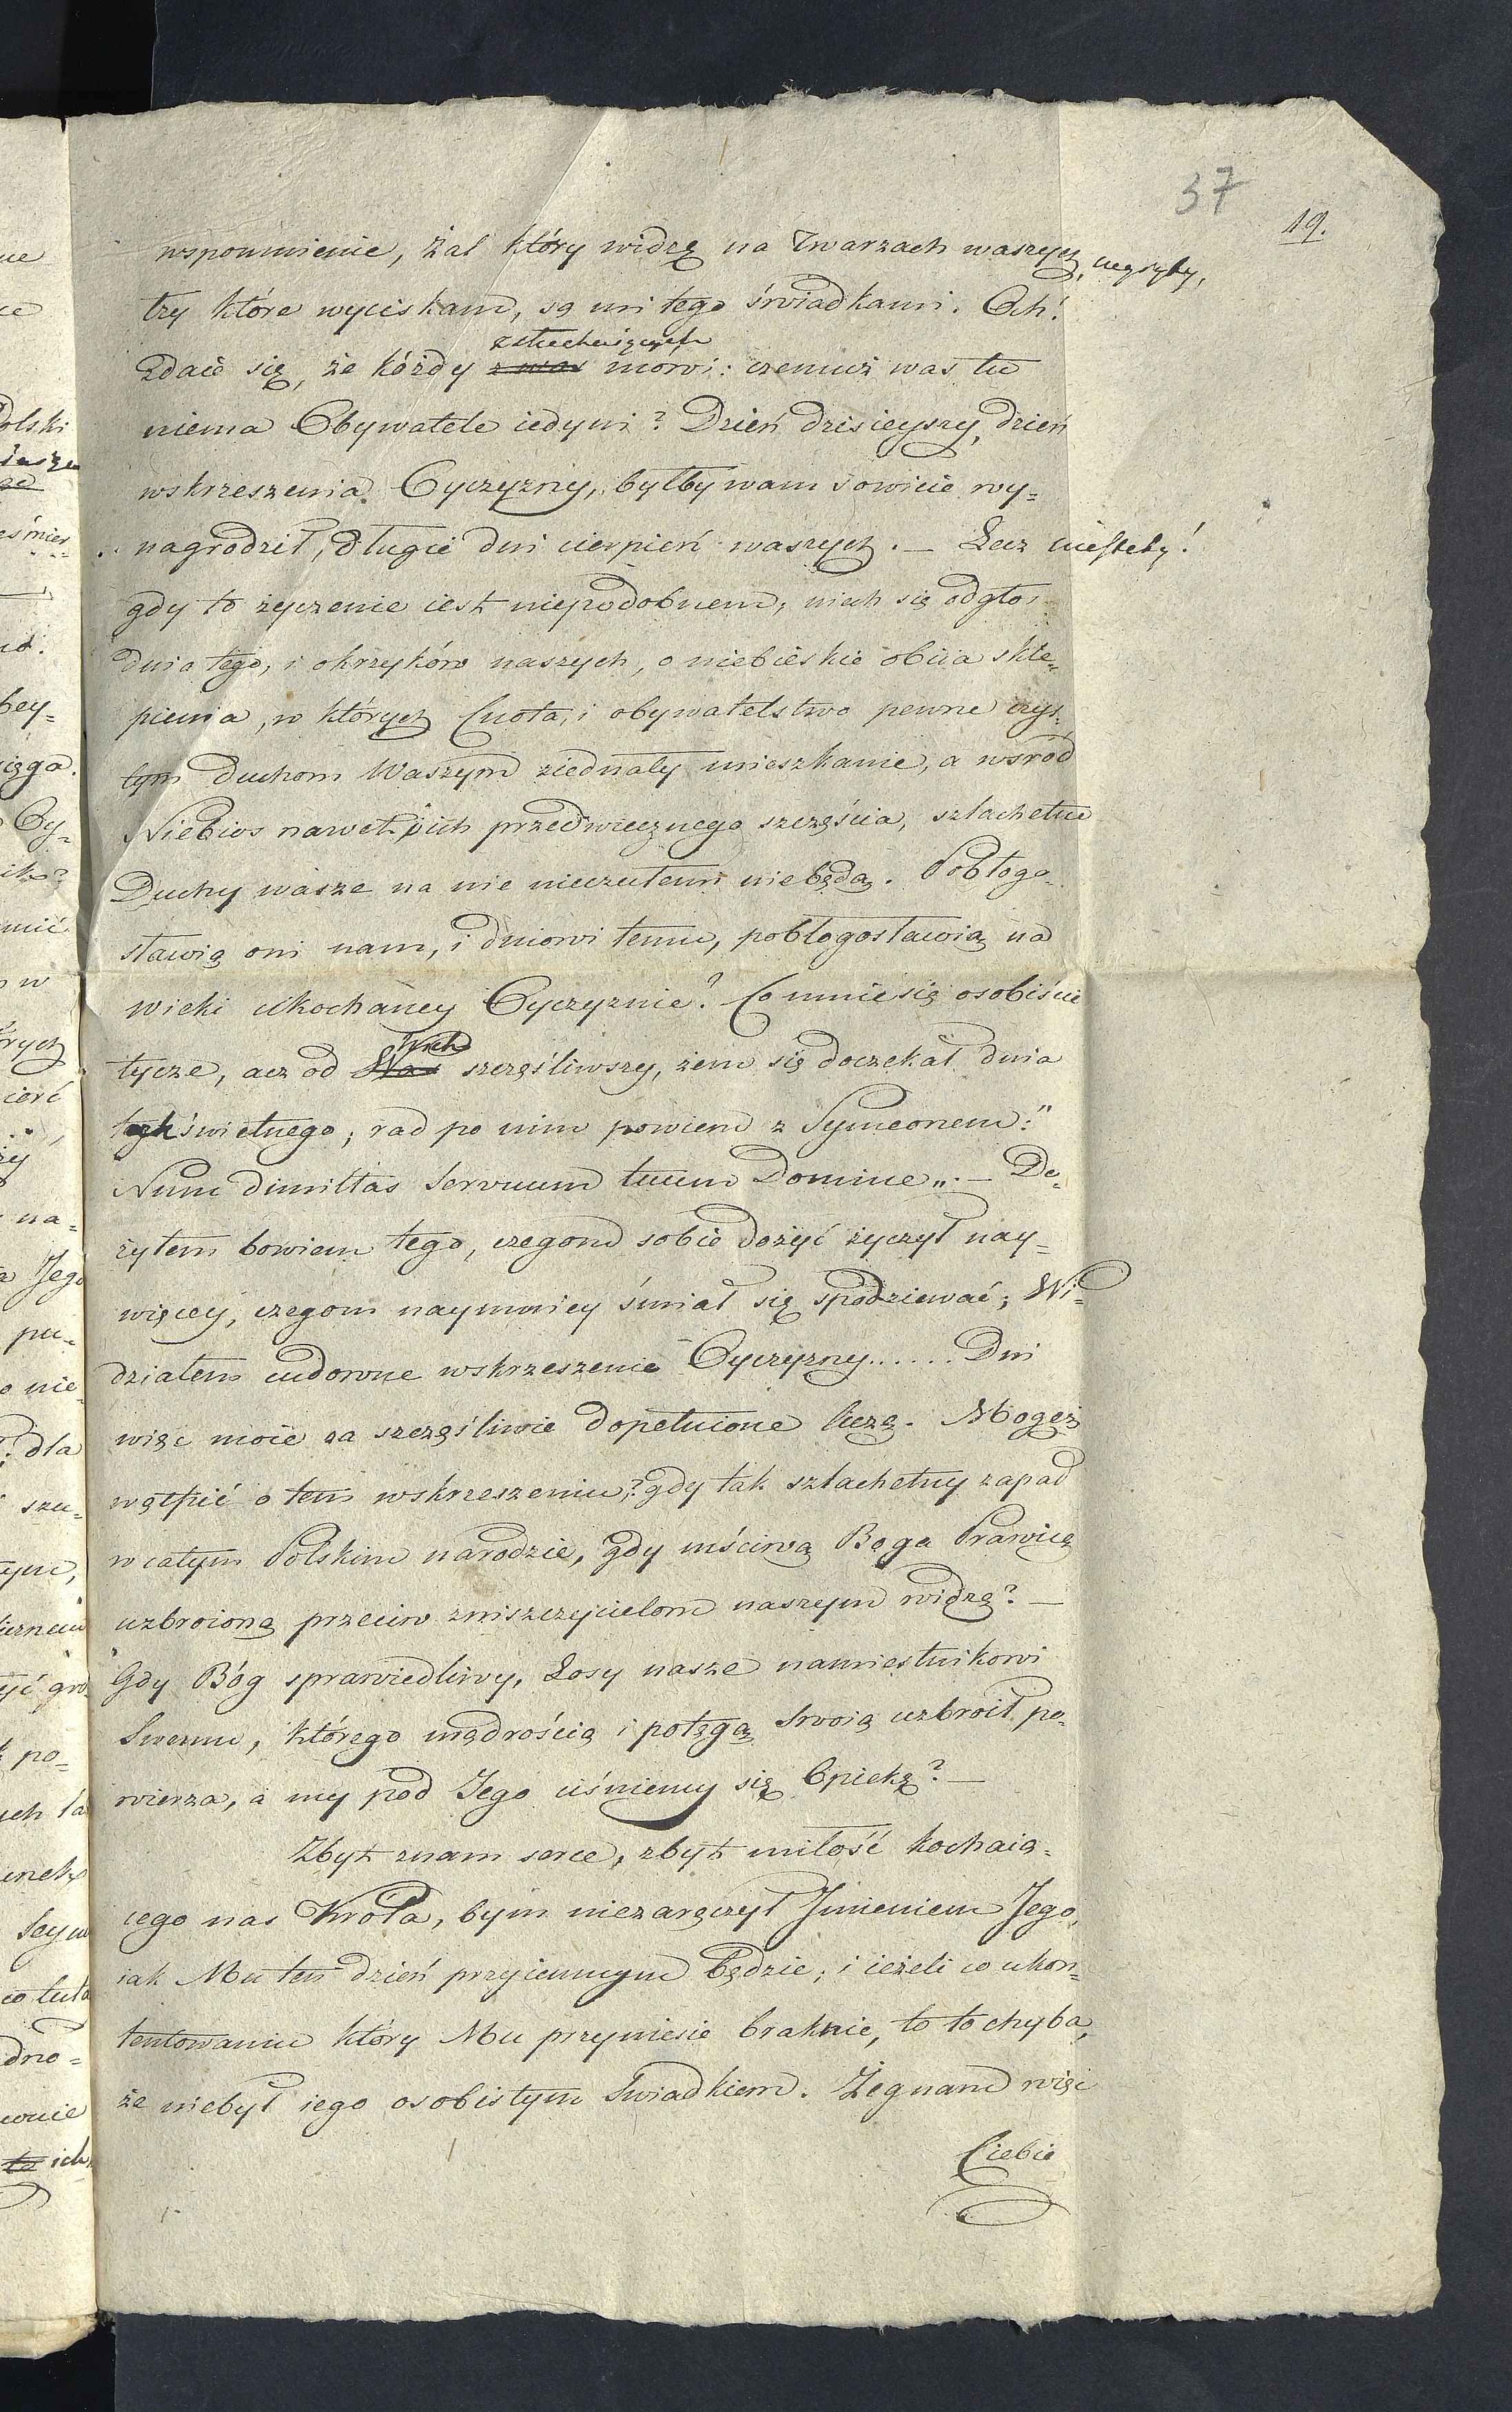 37
19.
wspomnienie, żal który widzę na twarzach waszych,
łzy które wyciskam, są mi tego świadkami. Ach!
zdaie się, że kóżdy z was mówi: czemuż was tu
niema Obywatele iedyni? Dzień dzisieyszy, dzień
wskrzeszenia Oyczyzny, byłby wam sowicie wy=
nagrodził, długie dni cierpień waszych. — Lecz niestety!
gdy to życzenie iest niepodobnem, niech się odgłos
dnia tego, i okrzyków naszych, o niebieskie obiia skle=
pienia, w których Cnota, i obywatelstwo pewne czys=
tym duchom Waszym ziednały mieszkanie, a wsród
Niebios nawet, i ich przedwiecznego szczęścia, szlachetne
Duchy wasze na nie nieczułemi niebędą. Pobłogo=
sławią oni nam, i dniowi temu, pobłogosławią na
wieki ukochaney Oyczyznie? Co mnie się osobiście
tycze, acz od Was Nich szczęśliwszy, żem się doczekał dnia
tak świetnego, rad po nim powiem z Symeonem:"
Nunc dimittas Servuum tuum Domine„. — Do=
żyłem bowiem tego, czegom sobie dożyć życzył nay=
więcey, czegom naymniey śmiał się spodziewać; Wi=
działem cudowne wskrzeszenie Oyczyzny...... Dni
więc moie za szczęśliwie dopełnione liczę. Mogęż
wątpić o tem wskrzeszeniu? gdy tak szlachetny zapał
w całym Polskim narodzie, gdy mściwą Boga Prawicę
uzbroioną przeciw zniszczycielom naszym widzę? —
Gdy Bóg sprawiedliwy, Losy nasze namiestnikowi
Swemu, którego mądrością i potęgą Swoią uzbroił po=
wierza, a my pod Jego ciśniemy się Opiekę? —
Zbyt znam serce, zbyt miłość kochaią=
cego nas Króla, bym niezaręczył Jmieniem Jego,
iak Mu ten dzień przyiemnym będzie; i ieżeli co ukon=
tentowaniu który Mu przyniesie braknie, to to chyba,
że niebył iego osobistym Swiadkiem. Żegnam więc
Ciebie